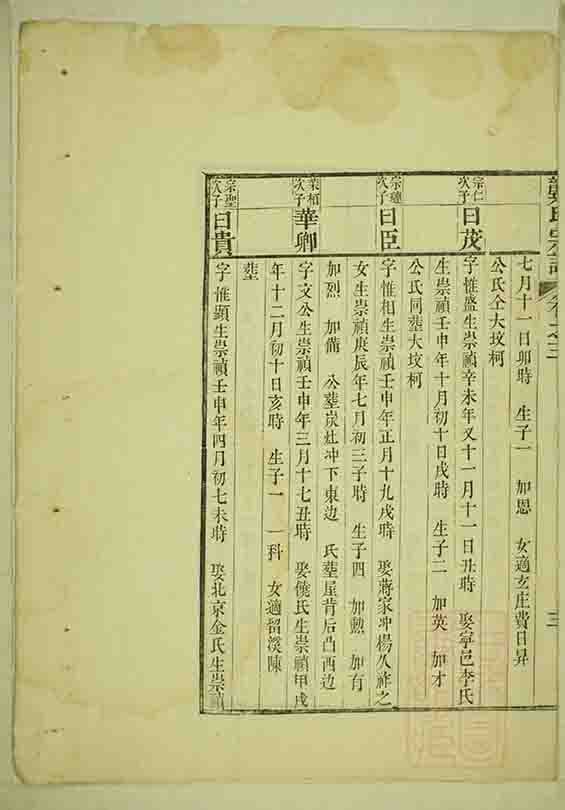 氏宗譜 卷之三 三
七月十一日卯時 生子一 加恩 女適玄庄費日昇
公氏仝大坟柯
宗仁次子 日茂 字惟盛生崇禎辛未年又十一月十一日丑時 娶寧邑李氏
生崇禎壬申年十月初十日戌時 生子二 加英 加才
公氏同塟大坟柯
宗 次子 日臣 字惟相生崇禎壬申年正月十九戌時 娶蔣家冲楊久祚之
女生崇禎庚辰年七月初三子時 生子四 加勲 加有
加烈 加備 公塟炭灶冲下東边 氏塟屋背后凸西边
榮栢次子 華卿 字文公生崇禎壬申年三月十七丑時 娶僥氏生崇禎甲戌
年十二月初十日亥時 生子一 一科 女適留溪陳
塟
宗聖次子 日貴 字惟顯生崇禎壬申年四月初七未時 娶北京金氏生崇禎